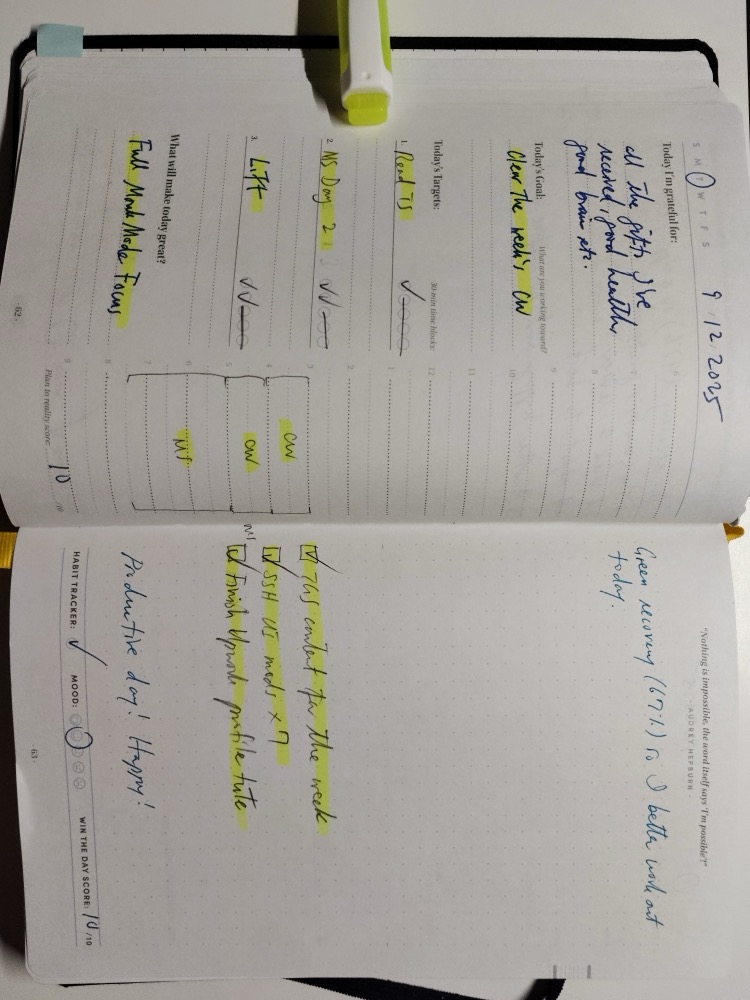 S M T W T F S
9 / 12 2025
Today I'm grateful for:
all the gifts I've
received, good health
good brain etc.
Today's Goal: What are you working toward?
Clear the week's CW
Today's Targets: 30 min time blocks:
1. Read TS
2. NS Day 2
3. Lift
What will make today great?
Full Monk Mode Focus
- 62 -
6
7
8
9
10
11
12
1
2
3
4
5
6
7
8
9
CW
CW
MT
Plan to reality score: 10 /10
"Nothing is impossible, the word itself says 'I'm possible'!"
- AUDREY HEPBURN -
Green recovery (67%) so I better work out
today.
content for the week
SSH UI mods x 7
Finish Upwork profile
Productive day! Happy!
HABIT TRACKER: MOOD: WIN THE DAY SCORE: 10 /10
- 63 -